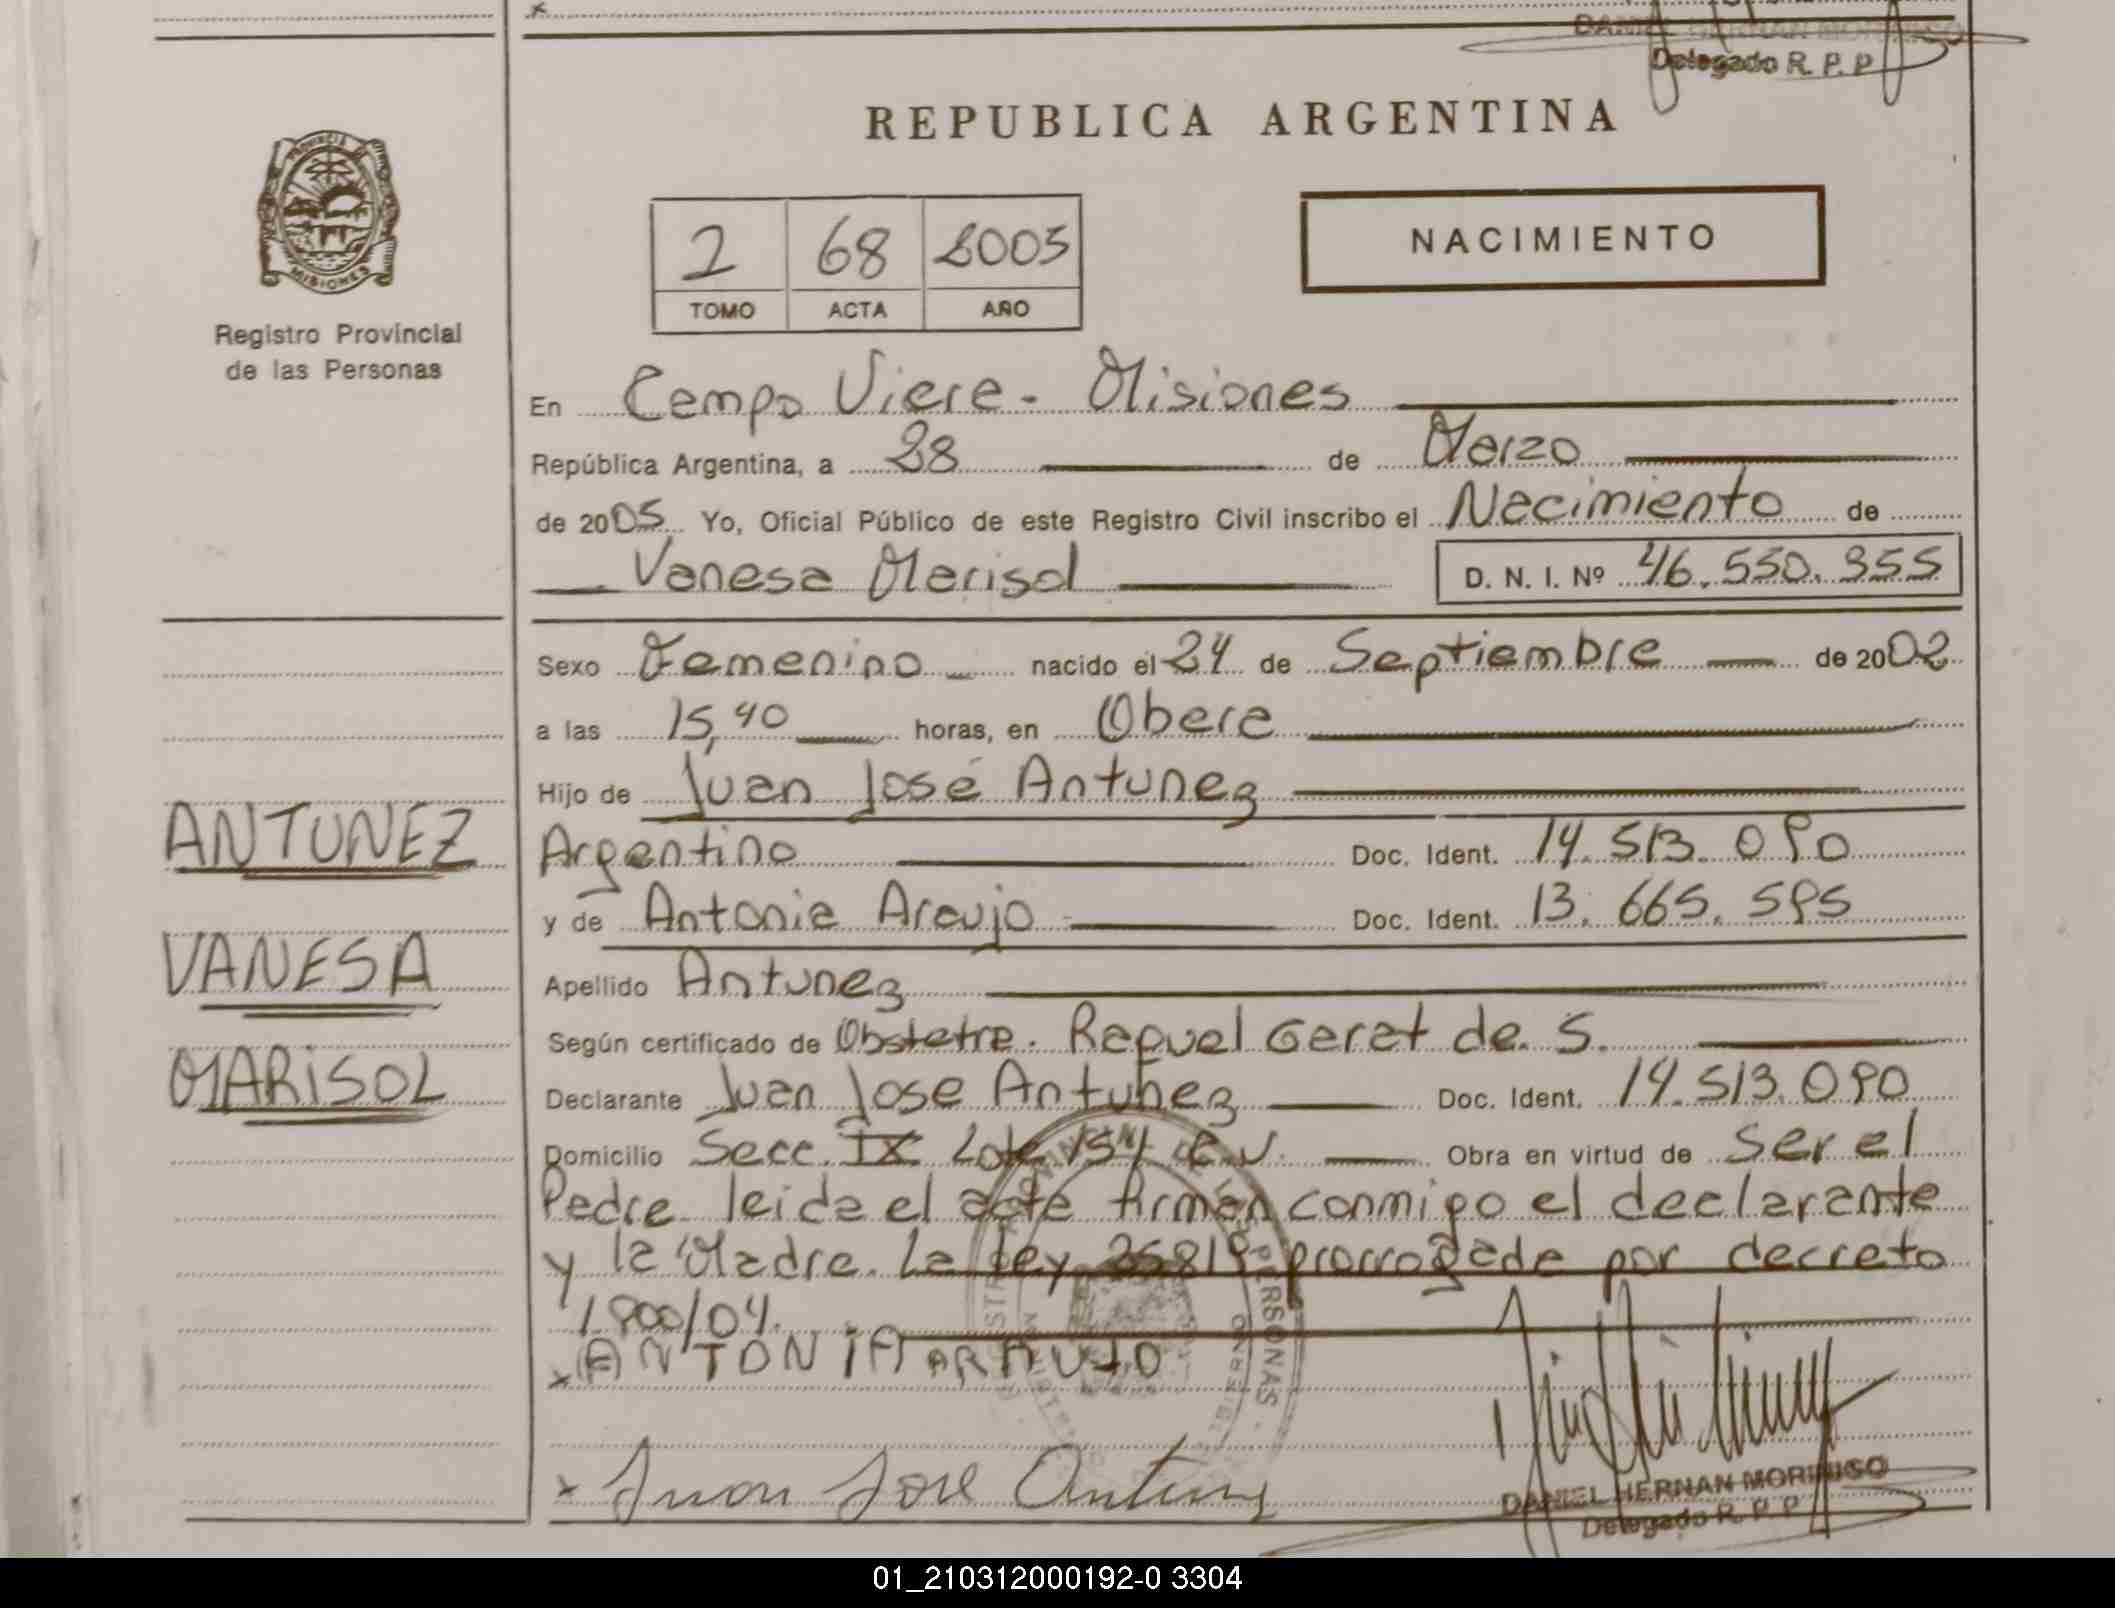 DANIEL HERNAN MORINIGO
Delegado R. P. P
REPUBLICA ARGENTINA
PROVINCIA DE
MISIONES
Registro Provincial
de las Personas
2 68 2005
TOMO ACTA AÑO
NACIMIENTO
En Campo Viera - Misiones
República Argentina, a 28 de Marzo
de 2005 Yo, Oficial Público de este Registro Civil inscribo el Nacimiento de
Vanesa Marisol D. N. I. Nº 46.550.355
Sexo Femenino nacido el 24 de Septiembre de 2002
a las 15,40 horas, en Obera
Hijo de Juan José Antunez
Argentino Doc. Ident. 14.513.090
y de Antonia Araujo Doc. Ident. 13.665.595
Apellido Antunez
Según certificado de Obstetra. Raquel Geret de. S.
Declarante Juan Jose Antunez Doc. Ident. 14.513.090
Domicilio Secc. IX Lote 154 C.V. Obra en virtud de ser el
Padre leida el acta firman conmigo el declarante
y la Madre. La ley 25819 prorrogada por decreto
1.900/04.
x ANTONIA ARAUJO
x Juan José Antunez
DANIEL HERNAN MORINIGO
Delegado R. P. P
ANTUNEZ
VANESA
MARISOL
01_210312000192-0 3304